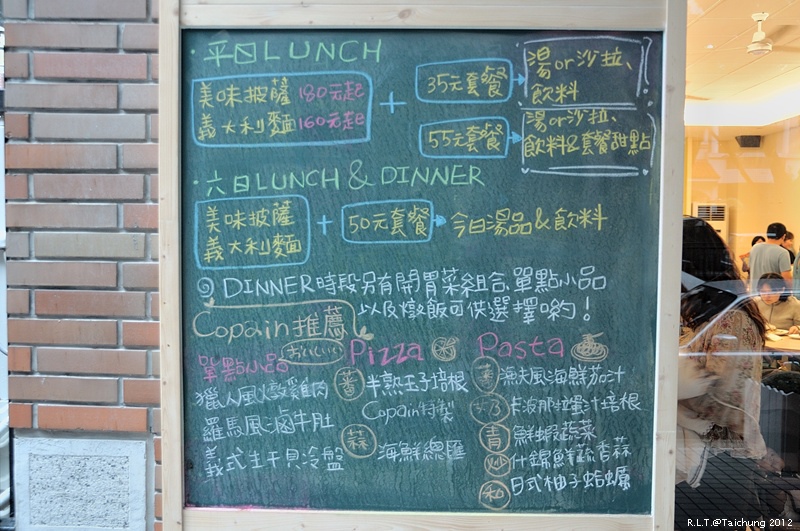 ·平日LUNCH
美味披薩 180元起
義大利麵 160元起
+
35元套餐
湯or沙拉、
飲料
55元套餐
湯or沙拉、
飲料&套餐甜點
·六日LUNCH & DINNER
美味披薩
義大利麵
+
50元套餐
今日湯品&飲料
DINNER時段另有開胃菜組合、單點小品
以及燉飯可供選擇喲!
Copain推薦
單點小品
おいしい
獵人風燉雞肉
羅馬風滷牛肚
義式生干貝冷盤
Pizza
番 半熟玉子培根
Copain特製
蒜 海鮮總匯
Pasta
番 漁夫風海鮮茄汁
奶 卡波那拉蛋汁培根
青 鮮蝦蔬菜
炒 什錦鮮蔬香蒜
和 日式柚子蛤蠣
R.L.T.@Taichung 2012